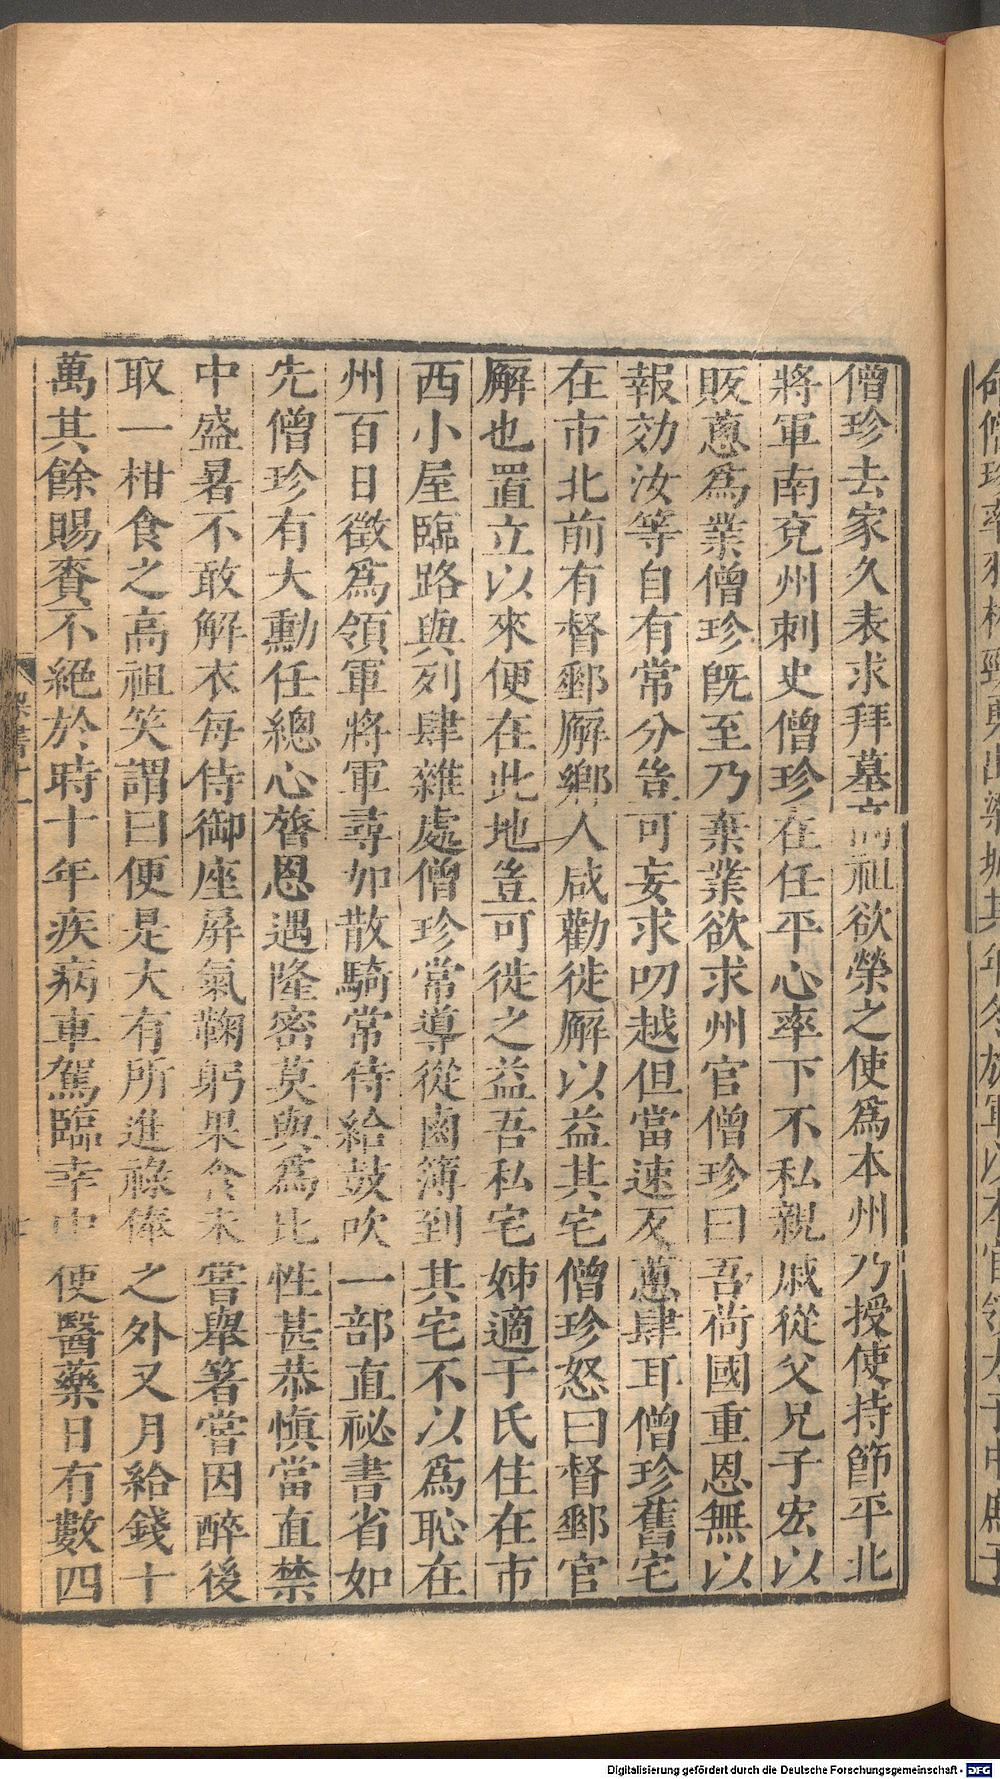 僧珍去家久表求拜墓高祖欲榮之使爲本州乃授使持節平北
將軍南兗州刺史僧珍在任平心率下不私親戚從父兄子宏以
販蔥爲業僧珍既至乃棄業欲求州官僧珍曰吾荷國重恩無以
報効汝等自有常分豈可妄求叨越但當速反蔥肆耳僧珍舊宅
在市北前有督郵廨鄉人咸勸徙廨以益其宅僧珍怒曰督郵官
廨也置立以來便在此地豈可徙之益吾私宅姊適于氏住在市
西小屋臨路與列肆雜處僧珍常導從鹵簿到其宅不以爲恥在
州百日徵爲領軍將軍尋加散騎常侍給鼓吹一部直祕書省如
先僧珍有大勳任總心膂恩遇隆密莫與爲比性甚恭慎當直禁
中盛暑不敢解衣每侍御座屏氣鞠躬果食未嘗舉箸嘗因醉後
取一柑食之高祖笑謂曰便是大有所進祿俸之外又月給錢十
萬其餘賜賚不絕於時十年疾病車駕臨幸中使醫藥日有數四
梁書十一
Digitalisierung gefördert durch die Deutsche Forschungsgemeinschaft - DFG